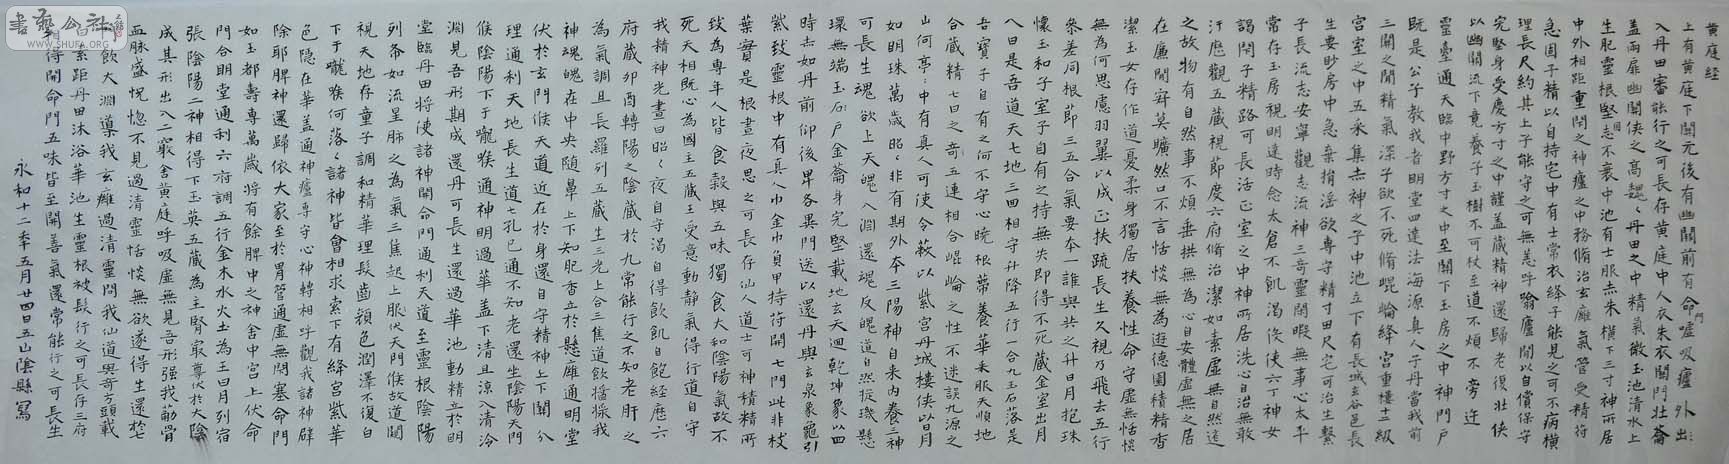 黄庭経
上有黄庭下關元後有幽闕前有命嘘吸廬外出
入丹田審能行之可長存黄庭中人衣朱衣關門壮蘥
蓋兩扉幽闕侠之高魏〻丹田之中精氣微玉池清水上
生肥靈根堅志不衰中池有士服赤朱横下三寸神所居
中外相距重閇之神廬之中務脩治玄廱氣管受精符
急固子精以自持宅中有士常衣絳子能見之可不病横
理長尺約其上子能守之可無恙呼噏廬間以自償保守
完堅身受慶方寸之中謹蓋蔵精神還歸老復壮侠
以幽闕流下竟養子玉樹不可杖至道不煩不旁迕
靈臺通天臨中野方寸之中至關下玉房之中神門户
既是公子教我者明堂四達法海源真人子丹當我前
三關之間精氣深子欲不死脩崐崘絳宮重樓十二級
宮室之中五采集赤神之子中池立下有長城玄谷邑長
生要眇房中急棄捐淫欲専守精寸田尺宅可治生繫
子長流志安寧觀志流神三奇靈閑暇無事心太平
常存玉房視明達時念太倉不飢渇役使六丁神女
謁閇子精路可長活正室之中神所居洗心自治無敢
汙歴觀五蔵視節度六府脩治潔如素虚無自然道
之故物有自然事不煩垂拱無為心自安體虚無之居
在廉間寂莫曠然口不言恬惔無為遊德園積精香
潔玉女存作道憂柔身獨居扶養性命守虚無恬惔
無為何思慮羽翼以成正扶疏長生久視乃飛去五行
叅差同根節三五合氣要本一誰與共之升日月抱珠
懐玉和子室子自有之持無失即得不死蔵金室出月
入日是吾道天七地三四相守升降五行一合九玉石落是
吾寶子自有之何不守心暁根蔕養華采服天順地
合蔵精七日之奇五連相合崐崘之性不迷誤九源之
山何亭〻中有真人可使令蔽以紫宮丹城樓侠以日月
如明珠萬歳昭〻非有期外本三陽神自来内養三神
可長生魂欲上天魄入淵還魂反魄道自然旋璣懸
環無端玉石戸金蘥身完堅載地玄天迴乾坤象以四
時赤如丹前仰後卑各異門送以還丹與玄泉象龜引
氣致靈根中有真人巾金巾負甲持符開七門此非枝
葉實是根晝夜思之可長存仙人道士可神積精所
致為専年人皆食穀與五味獨食太和陰陽氣故不
死天相既心為國主五蔵王受意動靜氣得行道自守
我精神光晝日昭〻夜自守渇自得飲飢自飽経歴六
府蔵卯酉轉陽之陰蔵於九常能行之不知老肝之
為氣調且長羅列五蔵生三光上合三焦道飲醬漿我
神魂魄在中央随鼻上下知肥香立於懸廱通明堂
伏於玄門候天道近在於身還自守精神上下關分
理通利天地長生道七孔已通不知老還坐陰陽天門
候陰陽下于嚨喉通神明過華蓋下清且涼入清泠
淵見吾形期成還丹可長生還過華池動精立於明
堂臨丹田将使諸神開命門通利天道至靈根陰陽
列希如流星肺之為氣三焦起上服伏天門候故道闚
視天地存童子調和精華理髮齒顔色潤澤不復白
下于嚨喉何落〻諸神皆會相求索下有絳宮紫華
色隠在華蓋通神廬専守心神轉相呼觀我諸神辟
除耶脾神還歸依大家至於胃管通虚無閇塞命門
如玉都壽専萬歳将有餘脾中之神舎中宮上伏命
門合明堂通利六府調五行金木水火土為王日月列宿
張陰陽二神相得下玉英五蔵為主腎最尊伏於大陰
成其形出入二竅舎黄庭呼吸虚無見吾形强我筋骨
血脉盛怳惚不見過清靈恬惔無欲遂得生還於七
門飲大淵導我玄廱過清靈問我仙道與奇方頭載
素距丹田沐浴華池生靈根被髪行之可長存三府
相得開命門五味皆至開善氣還常能行之可長生
永和十二年五月廿四日五山陰縣寫
書艺公社
WWW.SHUFA.ORG